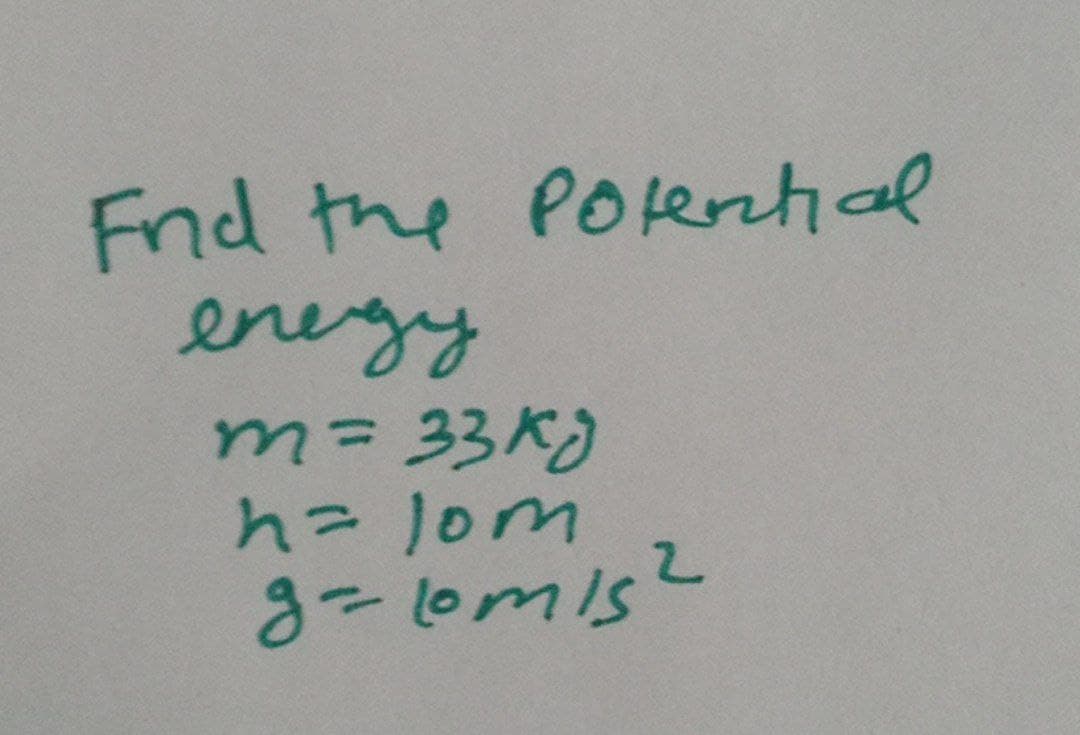 Find the Potential
energy
m = 33 Kg
h = 10m
g = 10m/s²